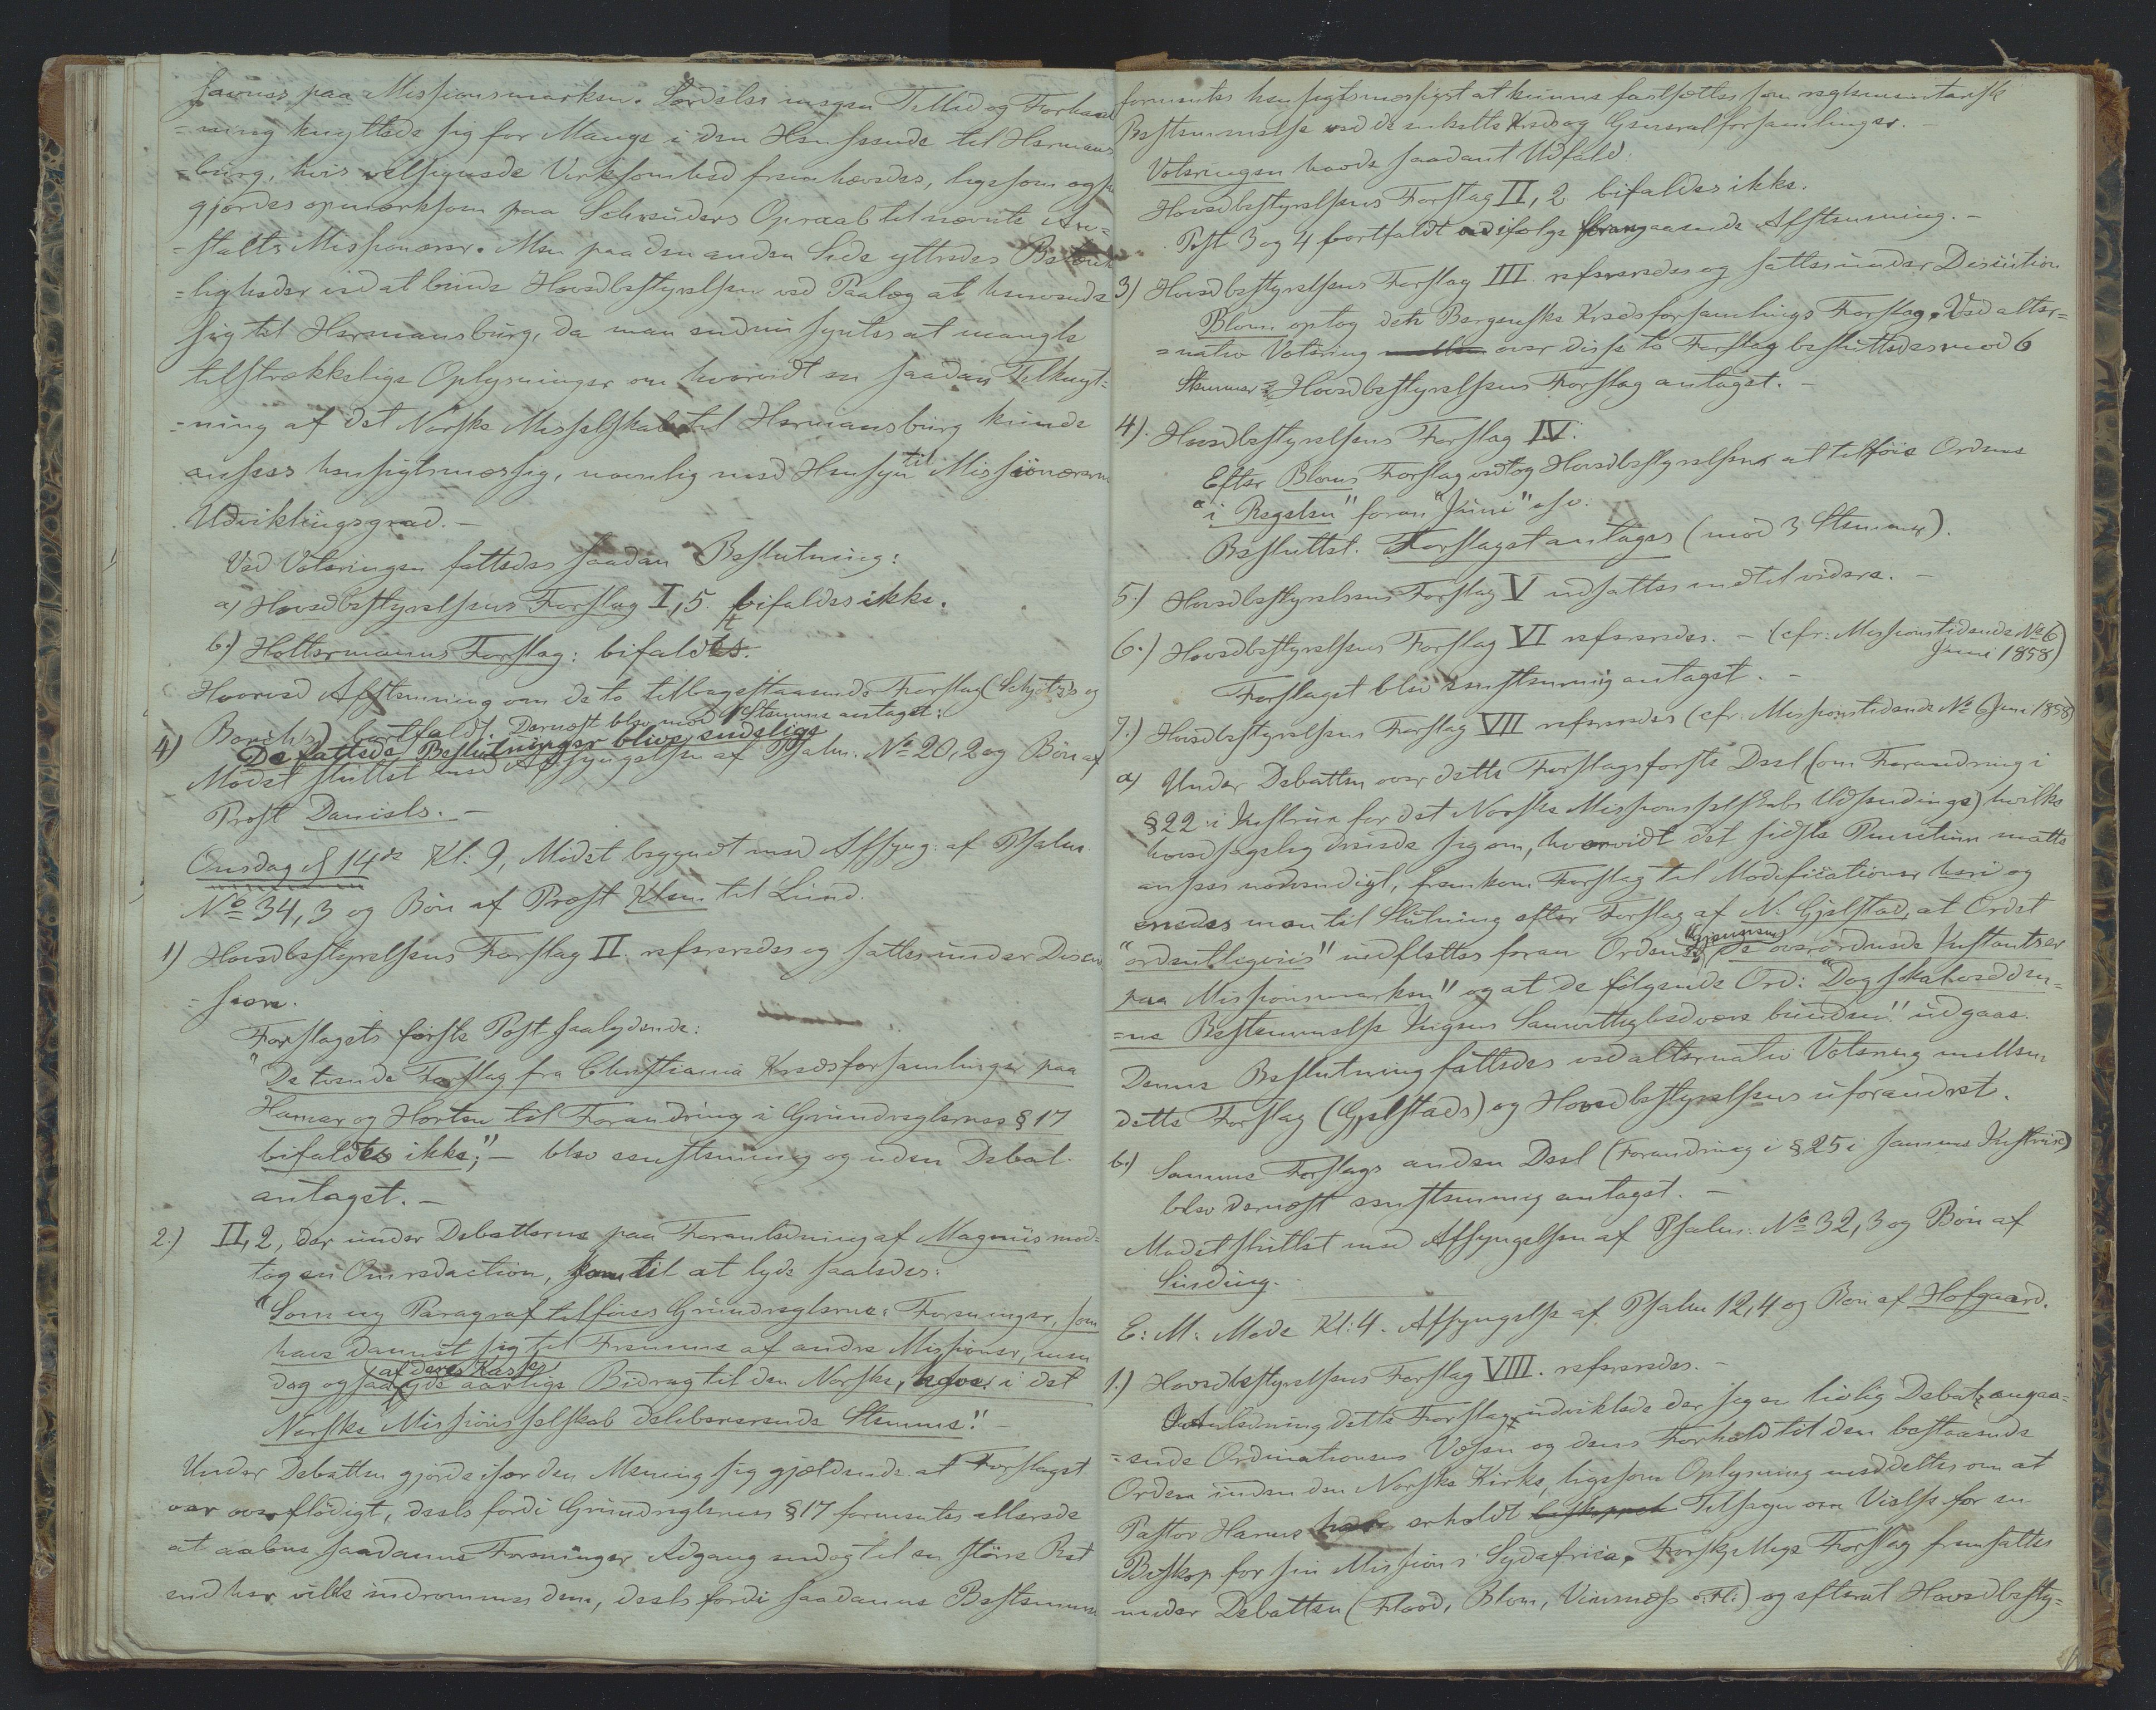 savnes paa Missionsmarken. Særdeles megen Tillid og Forhaab
=ning knyttede sig for Mange i den Henseende til Hermans
=burg, hvis velsignede Virksomhed fremhævedes, ligesom ogsaa
gjordes opmærksom paa Schreuders Opraab til nævnte An=
=stalts Missionærer. Men paa den anden Side yttredes Betænke
=ligheder ved at binde Hovedbestyrelsen ved Paalæg at henvende
sig til Hermansburg, da man endnu syntes at mangle
tilstrækkelige Oplysninger om hvorvidt en saadan Tilknyt=
=ning af det Norske Misselskab til Hermansburg kunde
ansees hensigtsmæssig, navnlig med Hensyn til Missionærernes
Udviklingsgrad. –
Ved Voteringen fattedes saadan Beslutning:
a) Hovedbestyrelsens Forslag I, 5. bifaldes ikke.
b.) Holtermanns Forslag: bifaldtes.
Hvorved Afstemning om de to tilbagestaaende Forslag (Schjøtz's og
Bonih's) bortfaldt. Dernæst blev mod 1 Stemme antaget:
4) De fattede Beslutninger blive endelige
Mødet sluttet med Afsyngelsen af Psalm. No 20,2 og Bøn af
Prost Daniels. –
Onsdag d 14de Kl: 9, Mødet begyndt med Afsyng: af Psalm
No 34,3 og Bøn af Prost Klem til Lund.
1) Hovedbestyrelsens Forslag II. refereredes og sattes under Discus
=sion.
Forslagets første Post saalydende:
"De tvende Forslag fra Christiania Kredsforsamlinger paa
Hamar og Horten til Forandring i Grundreglernes § 17
bifaldtes ikke;" – blev eenstemmig og uden Debat
antaget. –
2.) II, 2, der under Debatterne paa Foranledning af Magnus mod=
tog en Omredaction, kom til at lyde saaledes:
"Som ny Paragraf tilføies Grundreglerne: Foreninger, som
have dannet sig til Fremme af andre Missioner, men
dog ogsaa af deres Kasse yde aarlige Bidrag til den Norske, have i det
Norske Missionsselskab delibererende Stemme." –
Under Debatten gjorde især den Mening sig gjældende at Forslaget
var overflødigt, deels fordi Grundreglernes § 17 formentes allerede
at aabne saadanne Foreninger Adgang endog til en større Ret
end her vilde indrømmes dem, deels fordi saadanne Bestemme
formentes hensigtsmæssigst at kunne fastsættes som reglementariske
Bestemmelse ved de enkelte Kreds og Generalforsamlinger. –
Voteringen havde saadant Udfald:
Hovedbestyrelsens Forslag II, 2 bifaldes ikke.
Post 3 og 4 bortfaldt ifølge foregaaende Afstemning. –
3) Hovedbestyrelsens Forslag III. refereredes og sattes under Discution
Blom optog det Bergenske Kredsforsamlings Forslag. Ved alter=
=nativ Votering mellem over disse to Forslag besluttedes mod 6
Stemmer: Hovedbestyrelsens Forslag antaget. –
4). Hovedbestyrelsens Forslag IV.
Efter Bloms Forslag vedtog Hovedbestyrelsen at tilføie Ordene
"i Regelen" foran "Juni" osv:
Besluttet. Forslaget antages (mod 3 Stemmer).
5.) Hovedbestyrelsens Forslag V udsattes indtil videre. –
6.) Hovedbestyrelsens Forslag VI refereredes. – (cfr: Missionstidende No 6
Juni 1858)
Forslaget blev eenstemmig antaget. –
7.) Hovedbestyrelsens Forslag VII refereredes (cfr. Missionstidende No 6 Juni 1858)
a) Under Debatten over dette Forslags første Deel (om Forandring i
§ 22 i Instrux for det Norske Missionsselskabs Udsendinge) hvilke
hovedsagelig dreiede sig om, hvorvidt det sidste Punctum maatte
ansees nødvendigt, fremkom Forslag til Modificationer heri og
enedes man til Slutning efter Forslag af N. Gjelstad, at Ordet
"ordentligviis" indflettes foran Ordene: "gjennem de overordnede Instantser
paa Missionsmarken" og at de følgende Ord: "Dog skal ved den=
=ne Bestemmelse Ingens Samvittighed være bunden" udgaae.
Denne Beslutning fattedes ved alternativ Votering mellem
dette Forslag (Gjelstads) og Hovedbestyrelsens uforandret.
b.) Samme Forslags anden Deel (Forandring i § 25 i samme Instrux)
blev dernæst eenstemmig antaget. –
Mødet sluttet med Afsyngelsen af Psalm. No 32,3 og Bøn af
Sinding.
E: M: Møde Kl: 4. Afsyngelse af Psalm 12,4 og Bøn af Hofgaard.
1.) Hovedbestyrelsens Forslag VIII. refereredes. –
I Anledning dette Forslag udviklede der sig en livlig Debat angaa=
=ende Ordinationens Væsen og dens Forhold til den bestaaende
Orden inden den Norske Kirke, ligesom Oplysning meddeltes om at
Pastor Harms havde erholdt Tilsagn om Vielse for en
Biskop for sin Mission i Sydafrica. Forskjellige Forslag fremsattes
under Debatten (Flood, Blom, Viersnæs o: Fl:) og efterat Hovedbesty=